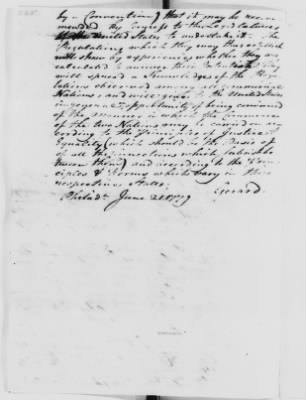 by a Convention) that it may be recom
mended by Congress to the Legislatures
of the United States to undertake it. The
Regulations which they may have
will shew by experience whether they are
calculated to answer their They
will spread a knowledge of the Regu
lations observed among all commercial
Nations and will give to the
in general, oppertunity of being convinced
of the manner in which the Commerce
of the two Nations may be carried on ac
cording to the Principles of Justice &
Equality (which should be the Basis of
of all the connections which subsist be
tween them) and according to the Prin
ciples & Forms which vary in their
respective States.
Gerard.
Philada. June 21 1779